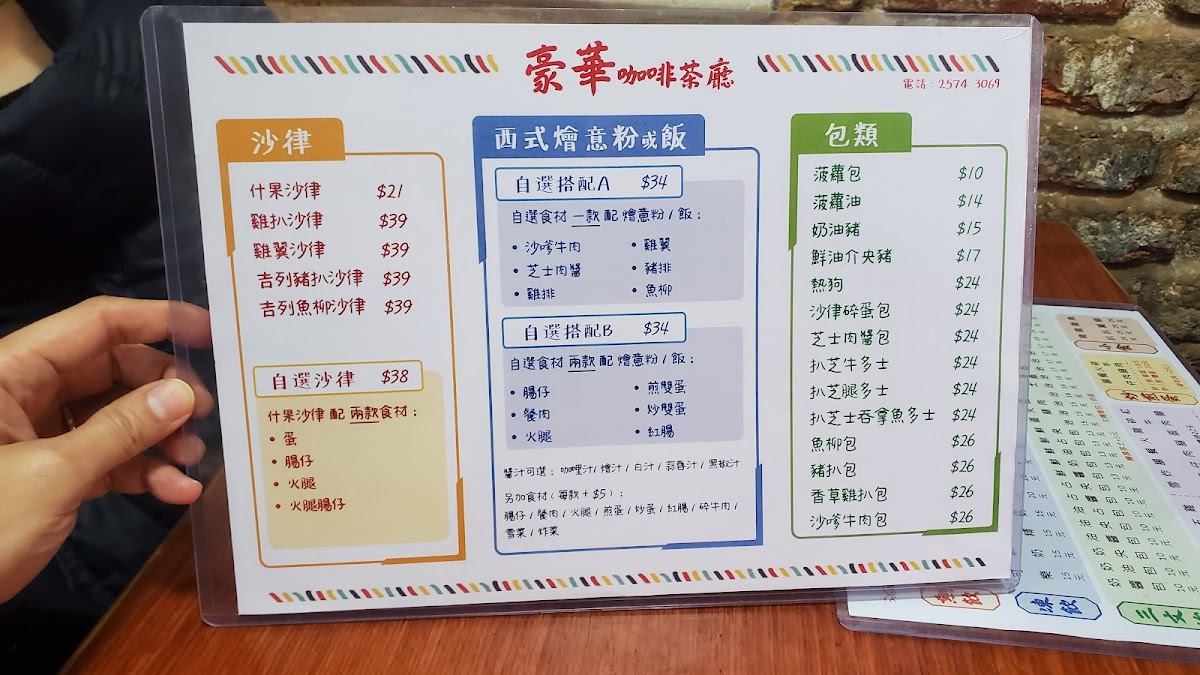 豪華咖啡茶廳
電話：2574 3069
沙律
什果沙律 $21
雞扒沙律 $39
雞翼沙律 $39
吉列豬扒沙律 $39
吉列魚柳沙律 $39
自選沙律 $38
什果沙律 配 兩款食材：
• 蛋
• 腸仔
• 火腿
• 火腿腸仔
西式燴意粉或飯
自選搭配A $34
自選食材 一款 配 燴意粉/飯：
• 沙嗲牛肉 • 雞翼
• 芝士肉醬 • 豬排
• 雞排 • 魚柳
自選搭配B $34
自選食材 兩款 配 燴意粉/飯：
• 腸仔 • 煎雙蛋
• 餐肉 • 炒雙蛋
• 火腿 • 紅腸
醬汁可選：咖喱汁/燴汁/白汁/蒜蓉汁/黑椒汁
另加食材（每款+$5）：
腸仔/餐肉/火腿/煎蛋/炒蛋/紅腸/碎牛肉/
雪菜/炸菜
包類
菠蘿包 $10
菠蘿油 $14
奶油豬 $15
鮮油介央豬 $17
熱狗 $24
沙律碎蛋包 $24
芝士肉醬包 $24
扒芝牛多士 $24
扒芝腿多士 $24
扒芝士吞拿魚多士 $24
魚柳包 $26
豬扒包 $26
香草雞扒包 $26
沙嗲牛肉包 $26
凍飲